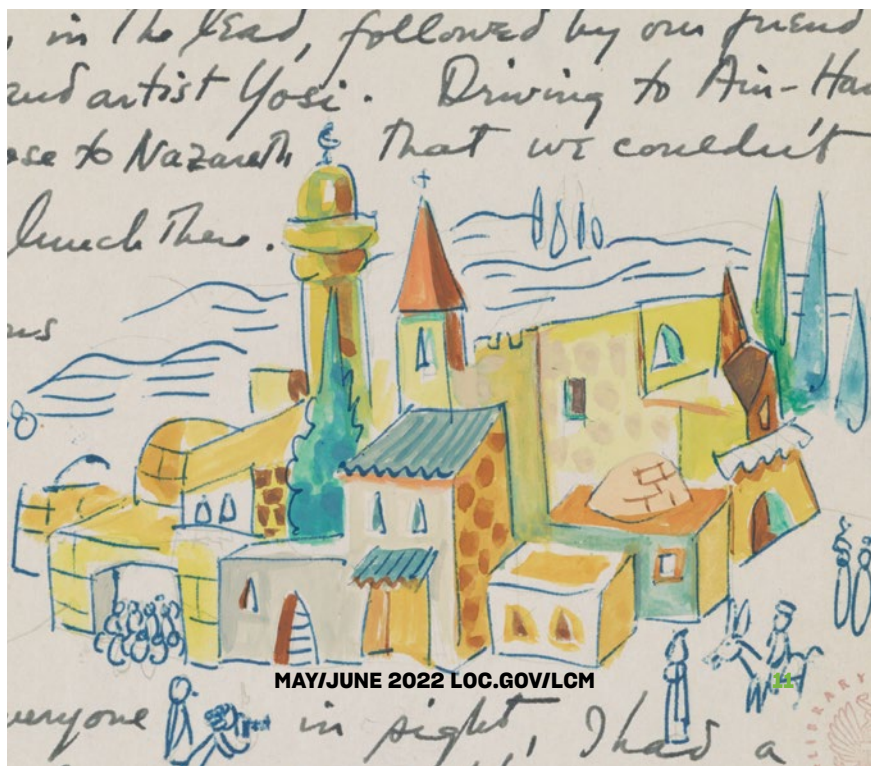 , in The lead, followed by our friend
and artist Yosi. Driving to Ain-Ha
ose to Nazareth That we couldn't
lunch There.
us
MAY/JUNE 2022 LOC.GOV/LCM 11
veryone in sight, I had a
LIBRARY